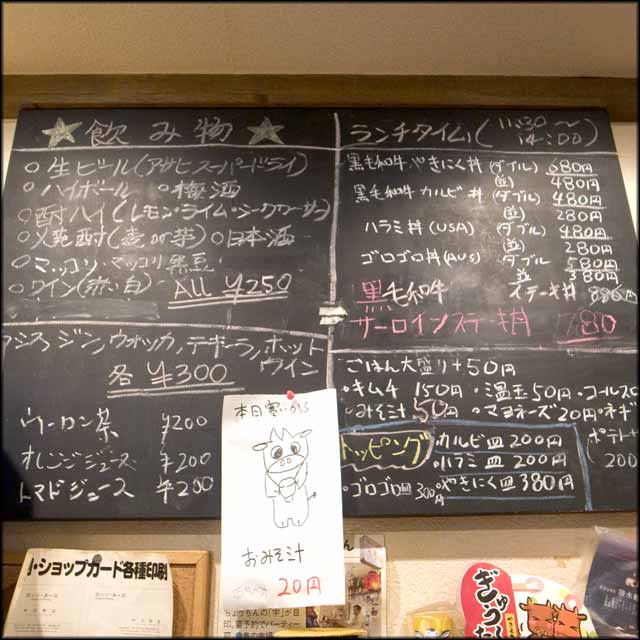 飲み物
○生ビール(アサヒスーパードライ)
○ハイボール ○梅酒
○酎ハイ(レモン・ライム・シークワーサー)
○乙焼酎(麦or芋) ○日本酒
○マッコリ マッコリ黒豆
○ワイン(赤・白) All ¥250
カシス, ジン, ウォッカ, テキーラ, ホット
ワイン
各 ¥300
ウーロン茶 ¥200
オレンジジュース ¥200
トマトジュース ¥200
ランチタイム(11:30~
14:00)
黒毛和牛やきにく丼(ダブル) 680円
(並) 480円
黒毛和牛カルビ丼(ダブル) 480円
(並) 280円
ハラミ丼(USA) (ダブル) 480円
(並) 280円
ゴロゴロ丼(AUS) (ダブル) 580円
並 380円
黒毛和牛 ステーキ丼
サーロインステーキ丼
ごはん大盛り+50円
・キムチ 150円 ・温玉50円 ・コールスロ
・おみそ汁 50円 ・マヨネーズ20円 ・ネギ
トッピング
・カルビ皿 200円
・ハラミ皿 200円
・ゴロゴロ皿 300円 ・やきにく皿 380円
ポテト
200
本日寒いから
おみそ汁
20円
ショップカード各種印刷
ちょうちんの「宇」が目
印。要予約でパーティー
ぎゅう